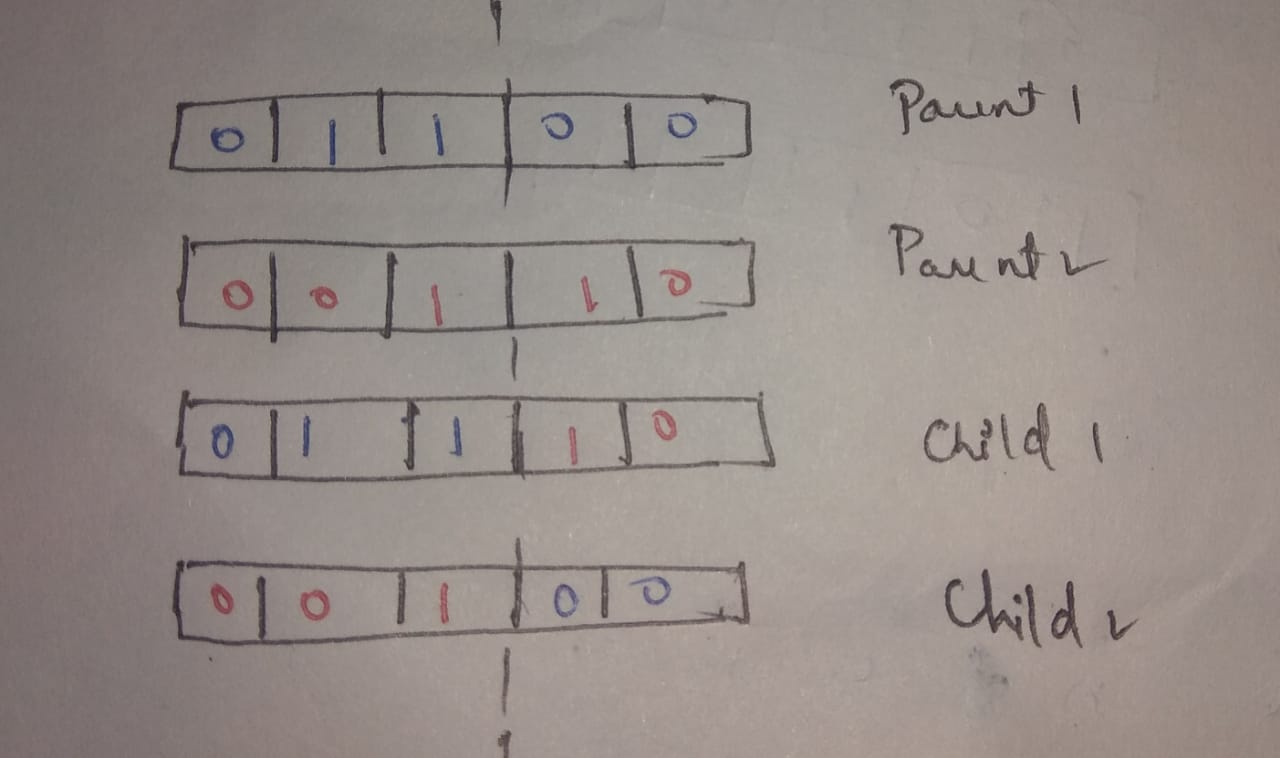 0 1 1 0 0 Parent 1
0 0 1 1 0 Parent 2
0 1 1 1 0 Child 1
0 0 1 0 0 Child 2